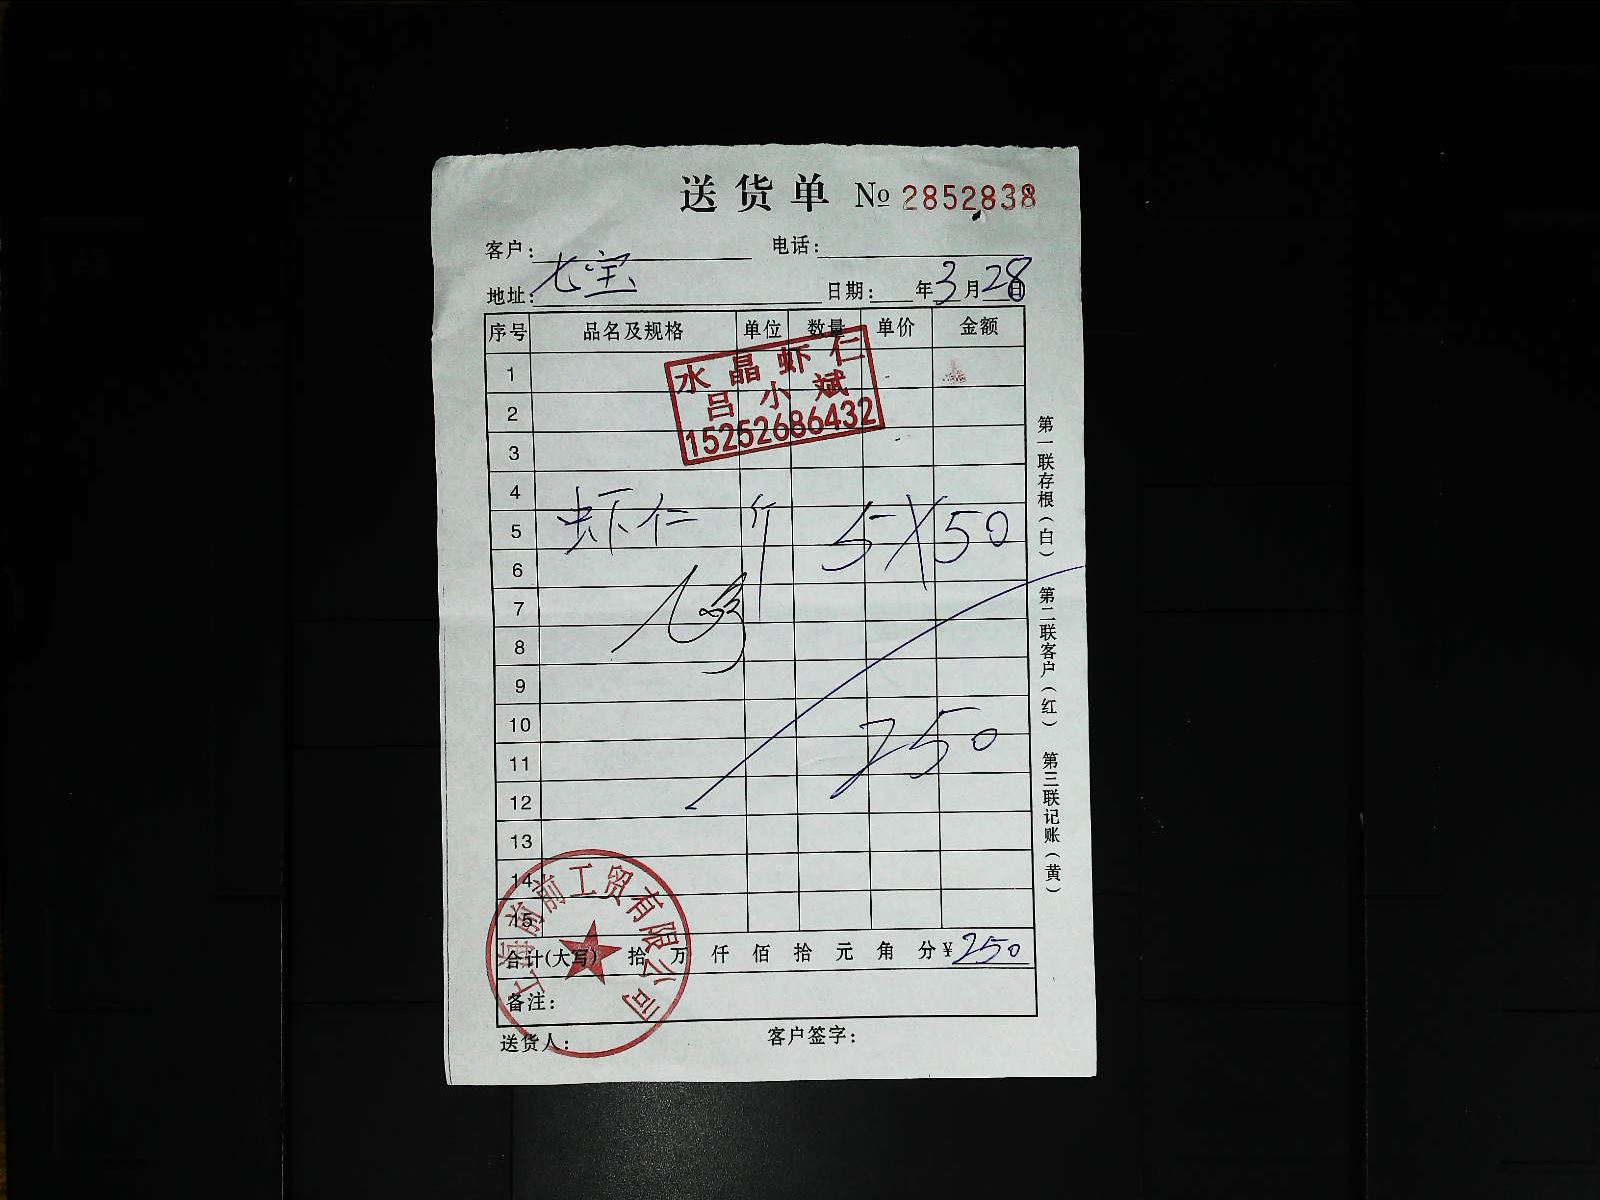 送货单 № 2852838
客户: 电话:
七宝
地址: 日期: 年3月28日
序号 品名及规格 单位 数量 单价 金额
水晶虾仁
吕小斌
15252686432
1
2
3
4
5 虾仁 斤 5×50
6
7
8
9
10
11 250
12
13
14
15
合计(大写) 拾 万 仟 佰 拾 元 角 分 ¥250
备注:
送货人: 客户签字:
第一联存根(白) 第二联客户(红) 第三联记账(黄)